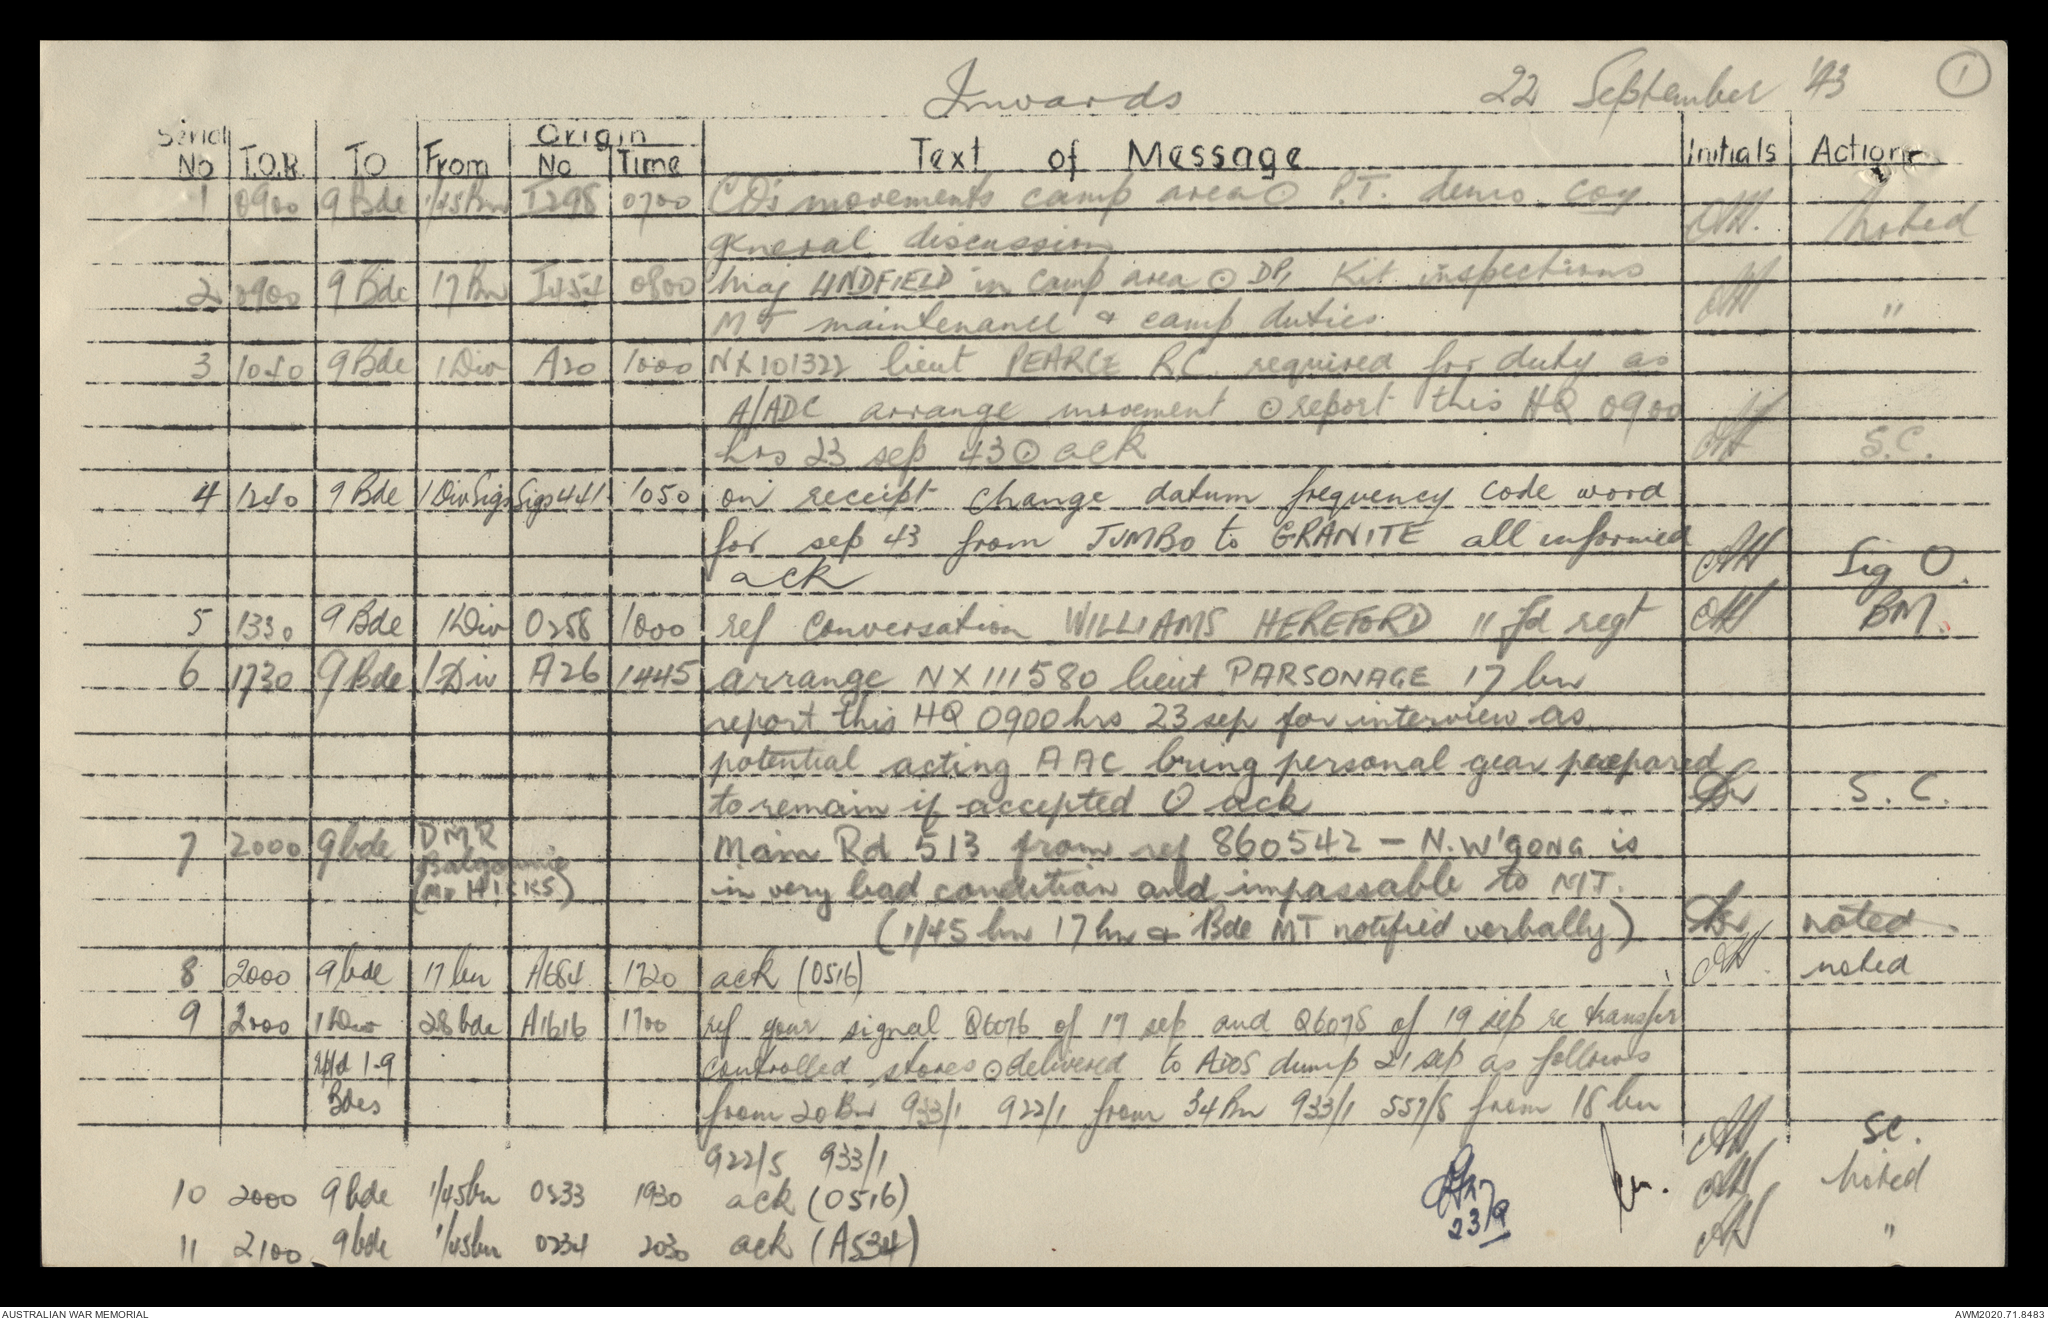 Inwards 22 September '43 1
Serial No T.O.R. TO From Origin No Time Text of Message Initials Action
1 0900 9 Bde 1/45 Bn I298 0700 CO's movements camp area ⊙ P.T. demo coy
general discussion noted
2 0900 9 Bde 17 Bn I454 0800 Maj LINDFIELD in camp area ⊙ Kit inspections
MT maintenance & camp duties "
3 1040 9 Bde 1 Div A20 1000 NX101322 lieut PEARCE R.C. required for duty as
A/ADC arrange movement ⊙ report this HQ 0900
hrs 23 sep 43 ⊙ ack S.C.
4 1240 9 Bde 1 Div Sigs Sigs 441 1050 on receipt change datum frequency code word
for sep 43 from JUMBO to GRANITE all informed
ack Sig O.
5 1330 9 Bde 1 Div O258 1000 ref conversation WILLIAMS HEREFORD 11 fd regt BM.
6 1730 9 Bde 1 Div A26 1445 arrange NX111580 lieut PARSONAGE 17 bn
report this HQ 0900 hrs 23 sep for interview as
potential acting AAC bring personal gear prepared
to remain if accepted ⊙ ack S.C.
7 2000 9 bde DMR Main Rd 513 from ref 860542 - N. W'GONG is
Balgownie in very bad condition and impassable to MT.
(Mr HICKS)
(1/45 bn 17 bn & Bde MT notified verbally) noted
8 2000 9 bde 17 bn A684 1720 ack (0516) noted
9 2000 1 Div 28 bde A1616 1700 ref your signal Q6076 of 17 sep and Q6078 of 19 sep re transfer
rptd 1-9 controlled stores ⊙ delivered to ADOS dump 21 sep as follows
Bdes from 20 Bn 933/1 922/1 from 34 Bn 933/1 557/8 from 18 bn
922/5 933/1 SC.
10 2000 9 bde 1/45 bn 0233 1930 ack (0516) Noted
11 2100 9 bde 1/45 bn 0234 2030 ack (A534) "
23/9
AUSTRALIAN WAR MEMORIAL AWM2020.71.8483